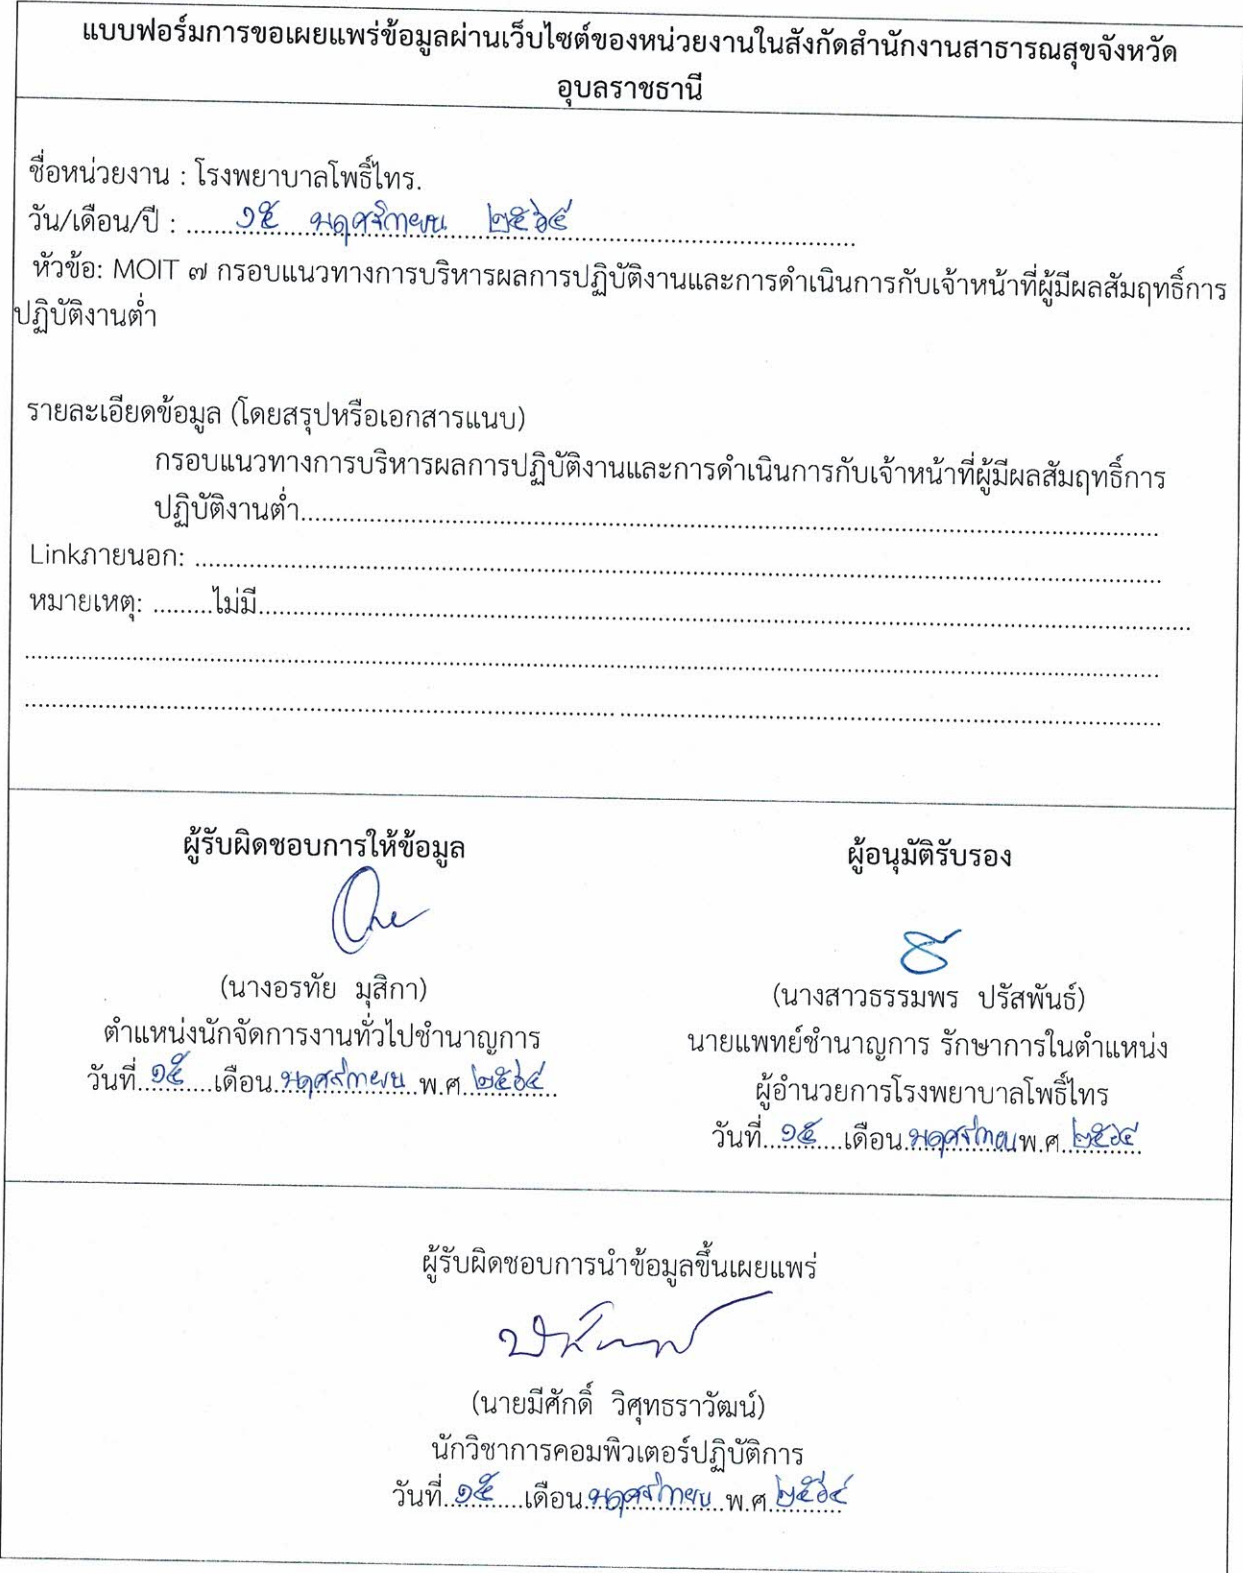 แบบฟอร์มการขอเผยแพร่ข้อมูลผ่านเว็บไซต์ของหน่วยงานในสังกัดสำนักงานสาธารณสุขจังหวัด
อุบลราชธานี
ชื่อหน่วยงาน : โรงพยาบาลโพธิ์ไทร.
วัน/เดือน/ปี : ........๑๕ พฤศจิกายน ๒๕๖๔........
หัวข้อ: MOIT ๗ กรอบแนวทางการบริหารผลการปฏิบัติงานและการดำเนินการกับเจ้าหน้าที่ผู้มีผลสัมฤทธิ์การ
ปฏิบัติงานต่ำ
รายละเอียดข้อมูล (โดยสรุปหรือเอกสารแนบ)
กรอบแนวทางการบริหารผลการปฏิบัติงานและการดำเนินการกับเจ้าหน้าที่ผู้มีผลสัมฤทธิ์การ
ปฏิบัติงานต่ำ........
Linkภายนอก: ........
หมายเหตุ: .........ไม่มี........
ผู้รับผิดชอบการให้ข้อมูล
(นางอรทัย มุสิกา)
ตำแหน่งนักจัดการงานทั่วไปชำนาญการ
วันที่..๑๕....เดือน.พฤศจิกายน..พ.ศ.๒๕๖๔..
ผู้อนุมัติรับรอง
(นางสาวธรรมพร ปรัสพันธ์)
นายแพทย์ชำนาญการ รักษาการในตำแหน่ง
ผู้อำนวยการโรงพยาบาลโพธิ์ไทร
วันที่..๑๕....เดือน.พฤศจิกายนพ.ศ.๒๕๖๔
ผู้รับผิดชอบการนำข้อมูลขึ้นเผยแพร่
(นายมีศักดิ์ วิศุทธราวัฒน์)
นักวิชาการคอมพิวเตอร์ปฏิบัติการ
วันที่..๑๕....เดือน.พฤศจิกายน..พ.ศ.๒๕๖๔